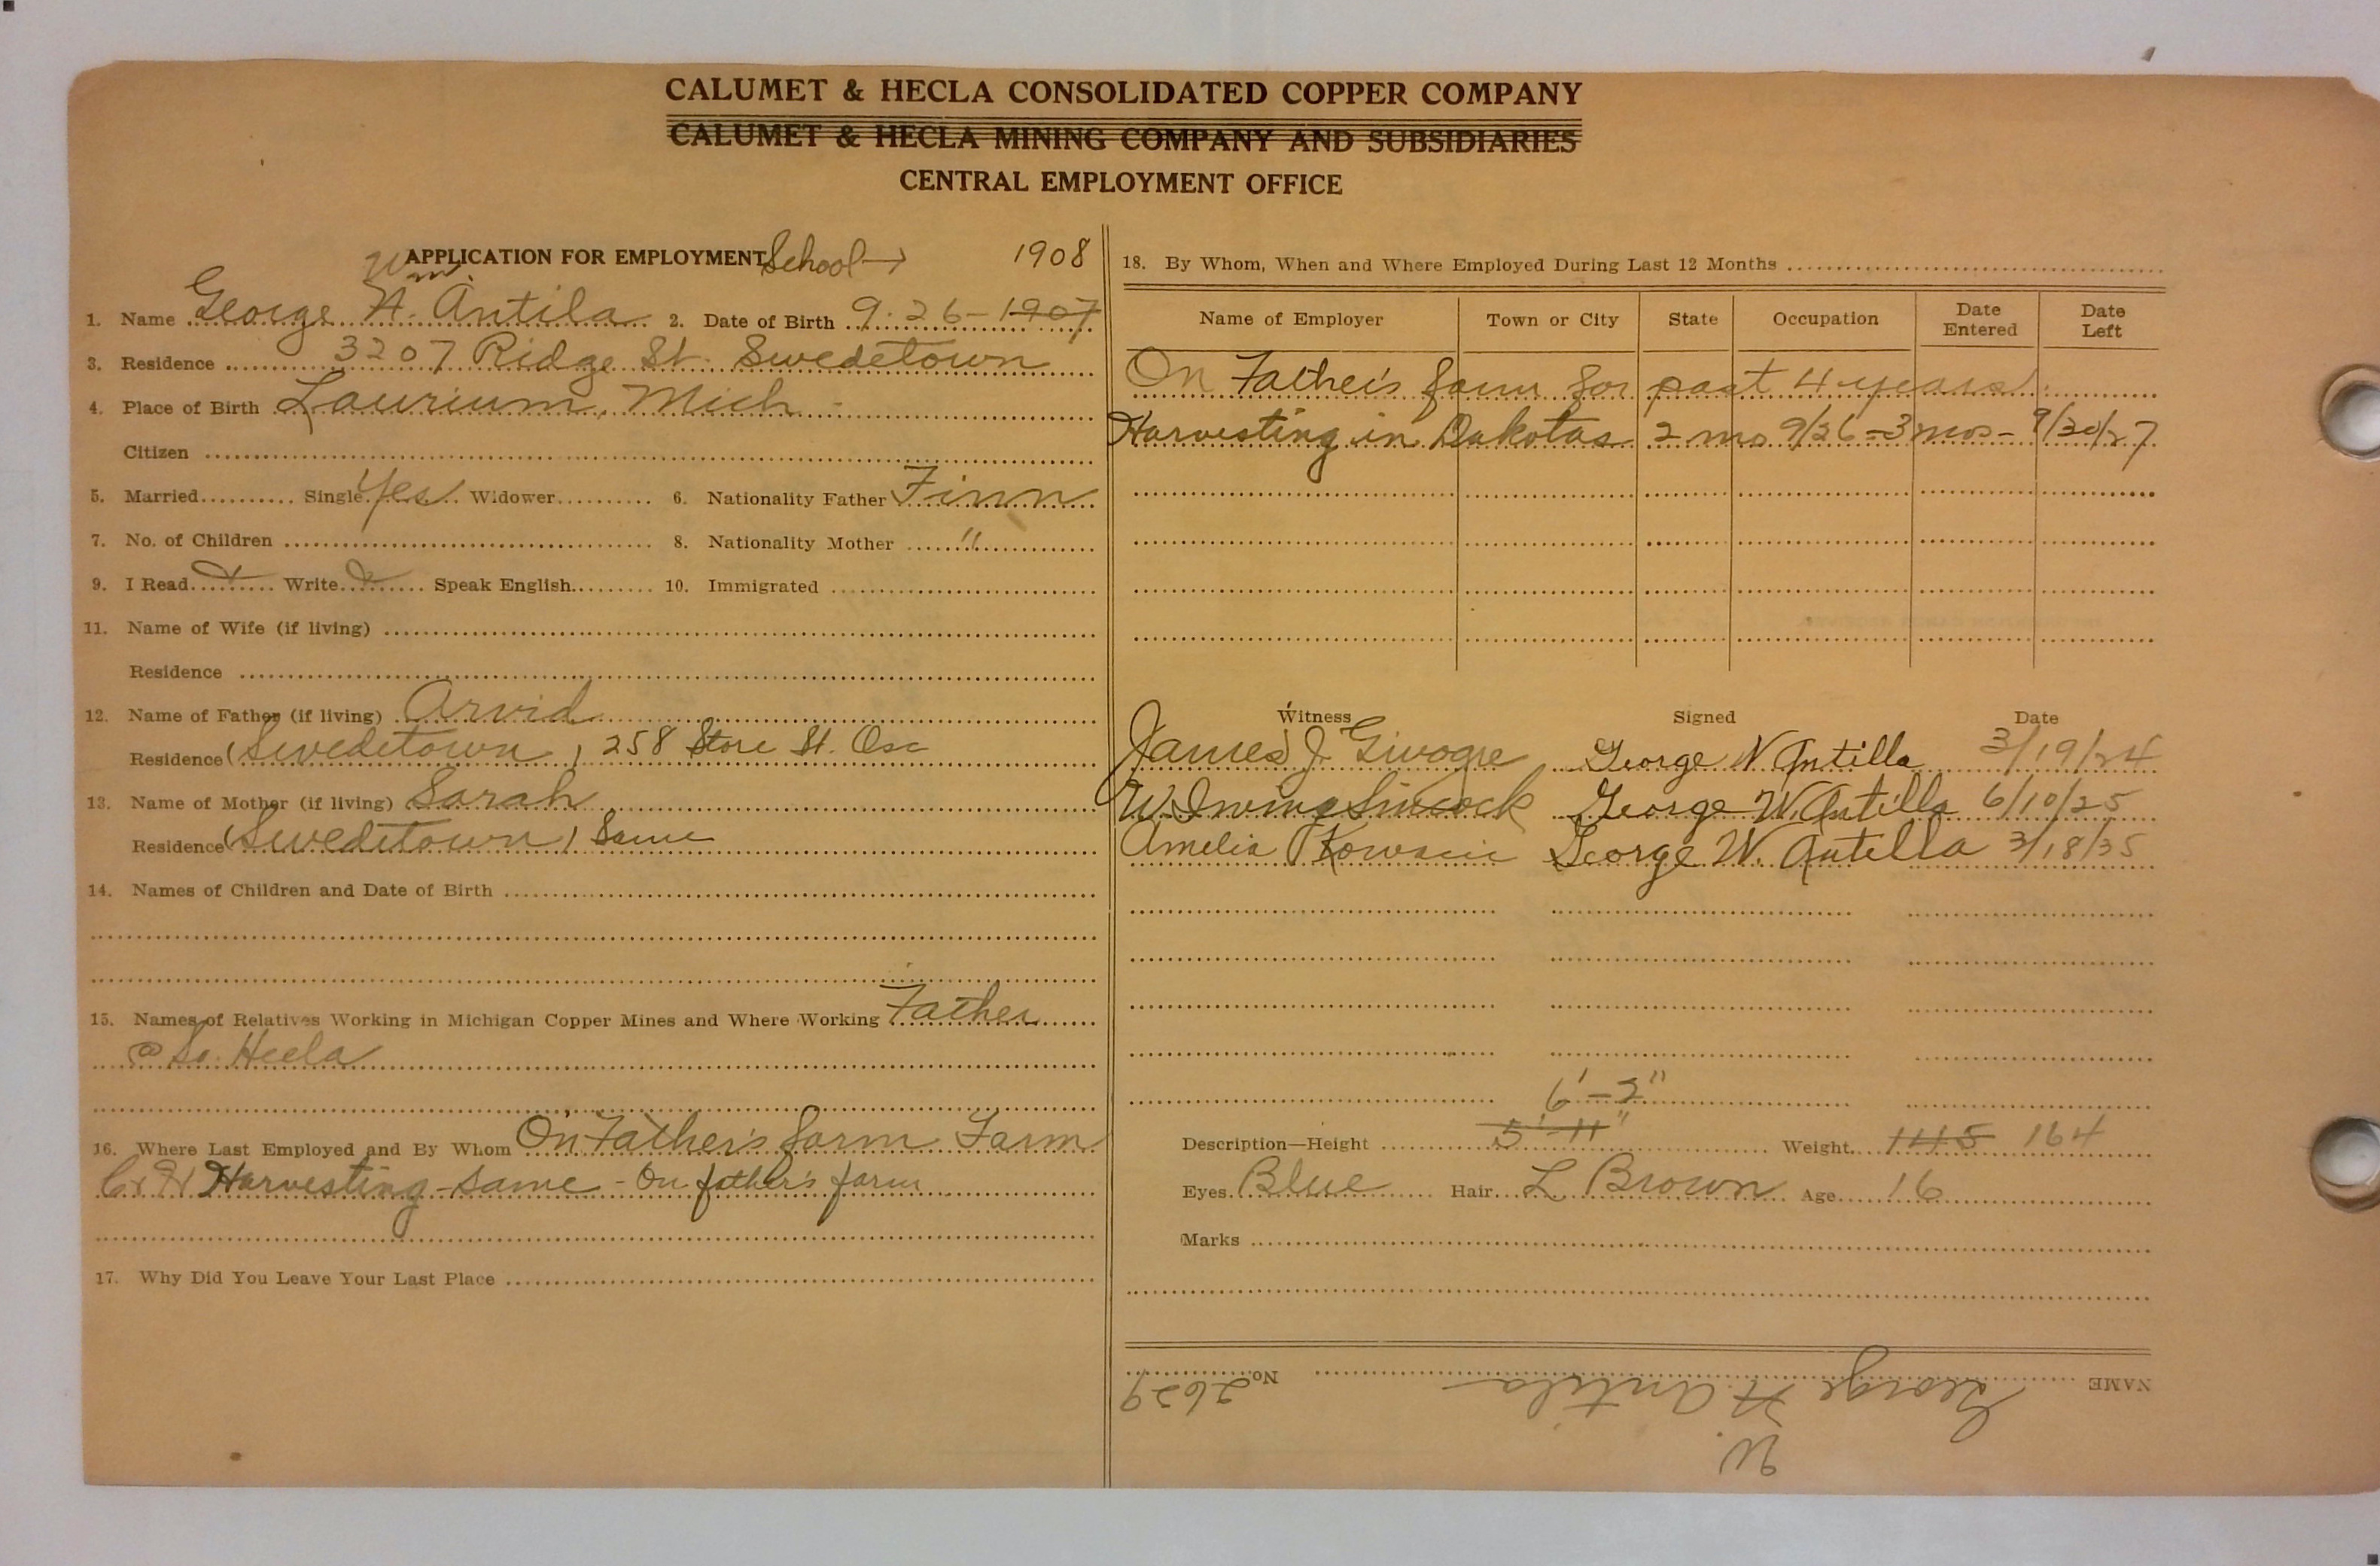 CALUMET & HECLA CONSOLIDATED COPPER COMPANY
CALUMET & HECLA MINING COMPANY AND SUBSIDIARIES
CENTRAL EMPLOYMENT OFFICE
APPLICATION FOR EMPLOYMENT School → 1908
Wm.
1. Name George N. Antila 2. Date of Birth 9-26-1907
3. Residence 3207 Ridge St. Swedetown
4. Place of Birth Laurium, Mich
Citizen
5. Married Single Yes Widower 6. Nationality Father Finn
7. No. of Children 8. Nationality Mother "
9. I Read Write Speak English 10. Immigrated
11. Name of Wife (if living)
Residence
12. Name of Father (if living) Arvid
Residence (Swedetown) 258 Store St. Osc
13. Name of Mother (if living) Sarah
Residence (Swedetown) Same
14. Names of Children and Date of Birth
15. Names of Relatives Working in Michigan Copper Mines and Where Working Father
@ So. Hecla
16. Where Last Employed and By Whom On Father's farm Farm
C & H Harvesting - Same - On father's farm
17. Why Did You Leave Your Last Place
18. By Whom, When and Where Employed During Last 12 Months
Name of Employer Town or City State Occupation Date Entered Date Left
On Father's farm for past 4 years.
Harvesting in Dakotas 2 mo 9/26 - 3 mos - 9/20/27
Witness Signed Date
James J. George N Antilla 3/19/24
W. Irving Sincock George W. Antilla 6/10/25
Amelia George W. Antilla 3/18/35
6'-2"
Description—Height 5'-11" Weight 1445 164
Eyes Blue Hair L Brown Age 16
Marks
NAME George N Antila No. 2629
W.